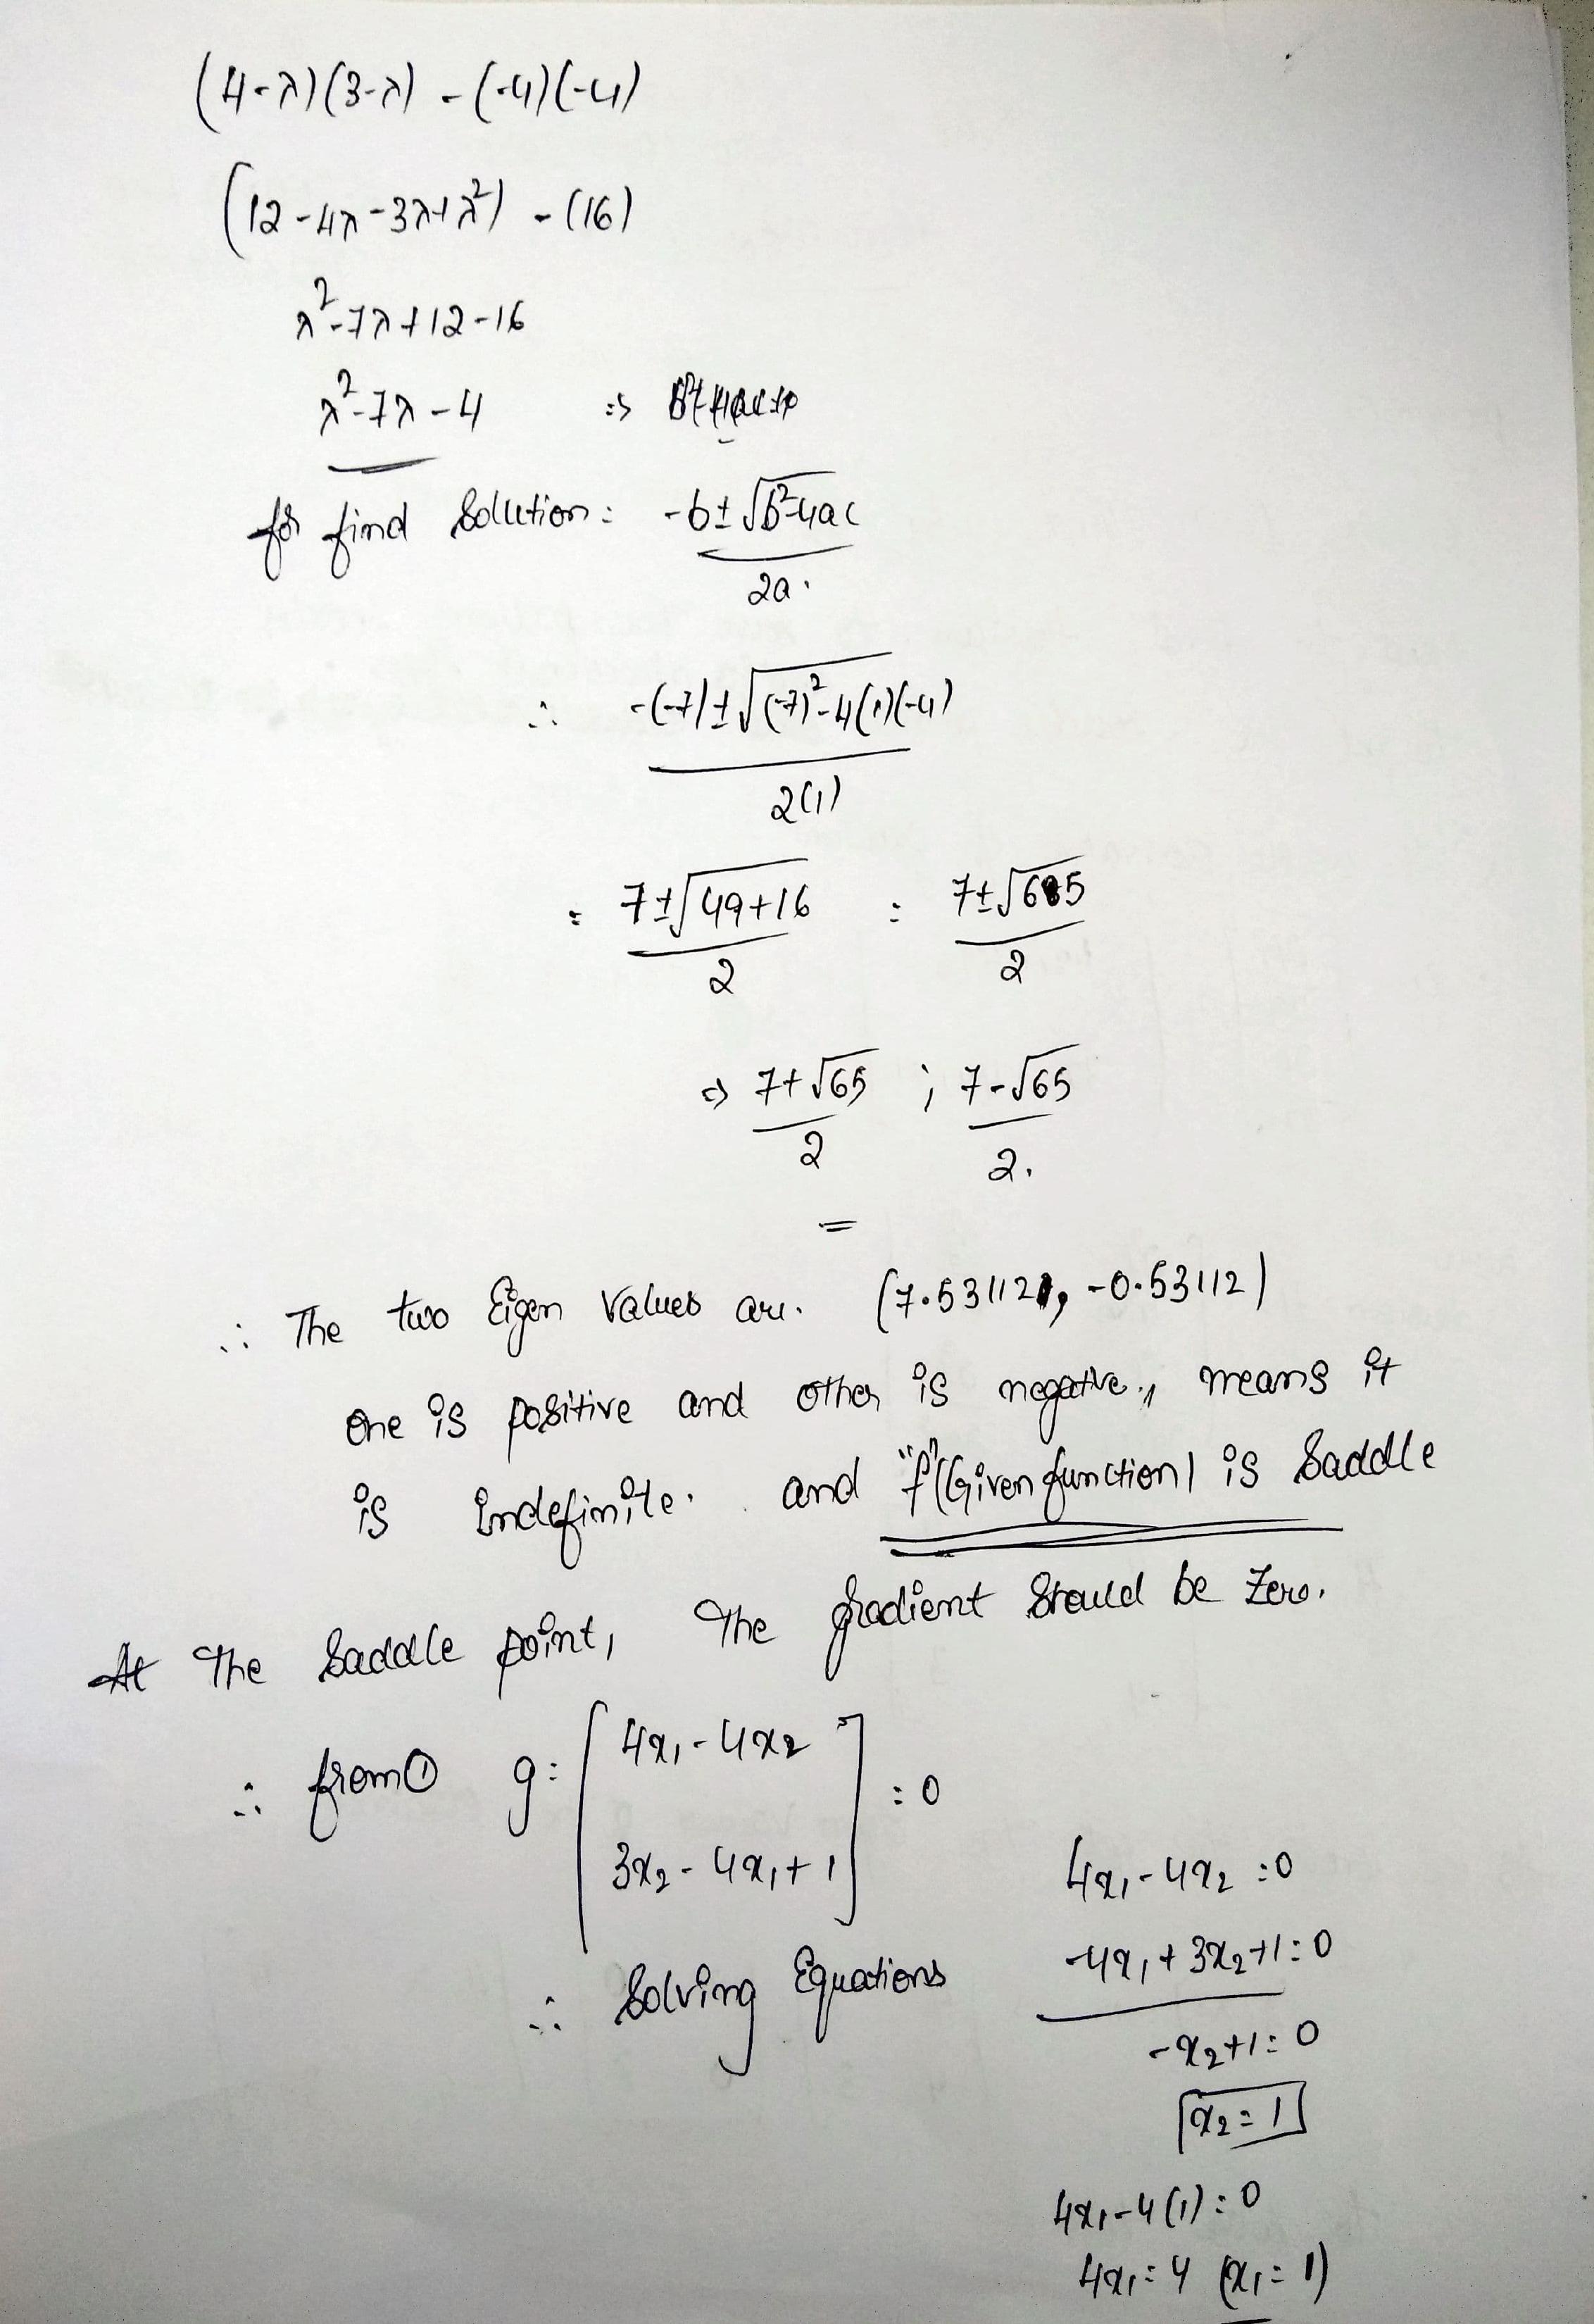 (4-λ)(3-λ) - (-4)(-4)
(12-4λ-3λ+λ²) - (16)
λ²-7λ+12-16
λ²-7λ-4 ⇒
for find Solution: -b±√b²-4ac
2a.
∴ -(-7)±√(-7)²-4(1)(-4)
2(1)
= 7±√49+16 = 7±√65
2 2
⇒ 7+√65 ; 7-√65
2 2.
=
∴ The two Eigen Values are. (7.53112, -0.53112)
one is positive and other is negative., means it
is indefinite. and "f"(Given function) is Saddle
At The Saddle point, The gradient Should be Zero.
∴ from ① g = [ 4x₁-4x₂
3x₂-4x₁+1 ] = 0
∴ Solving Equations
4x₁-4x₂ = 0
-4x₁+3x₂+1 = 0
-x₂+1 = 0
x₂ = 1
4x₁-4(1) = 0
4x₁ = 4 (x₁ = 1)